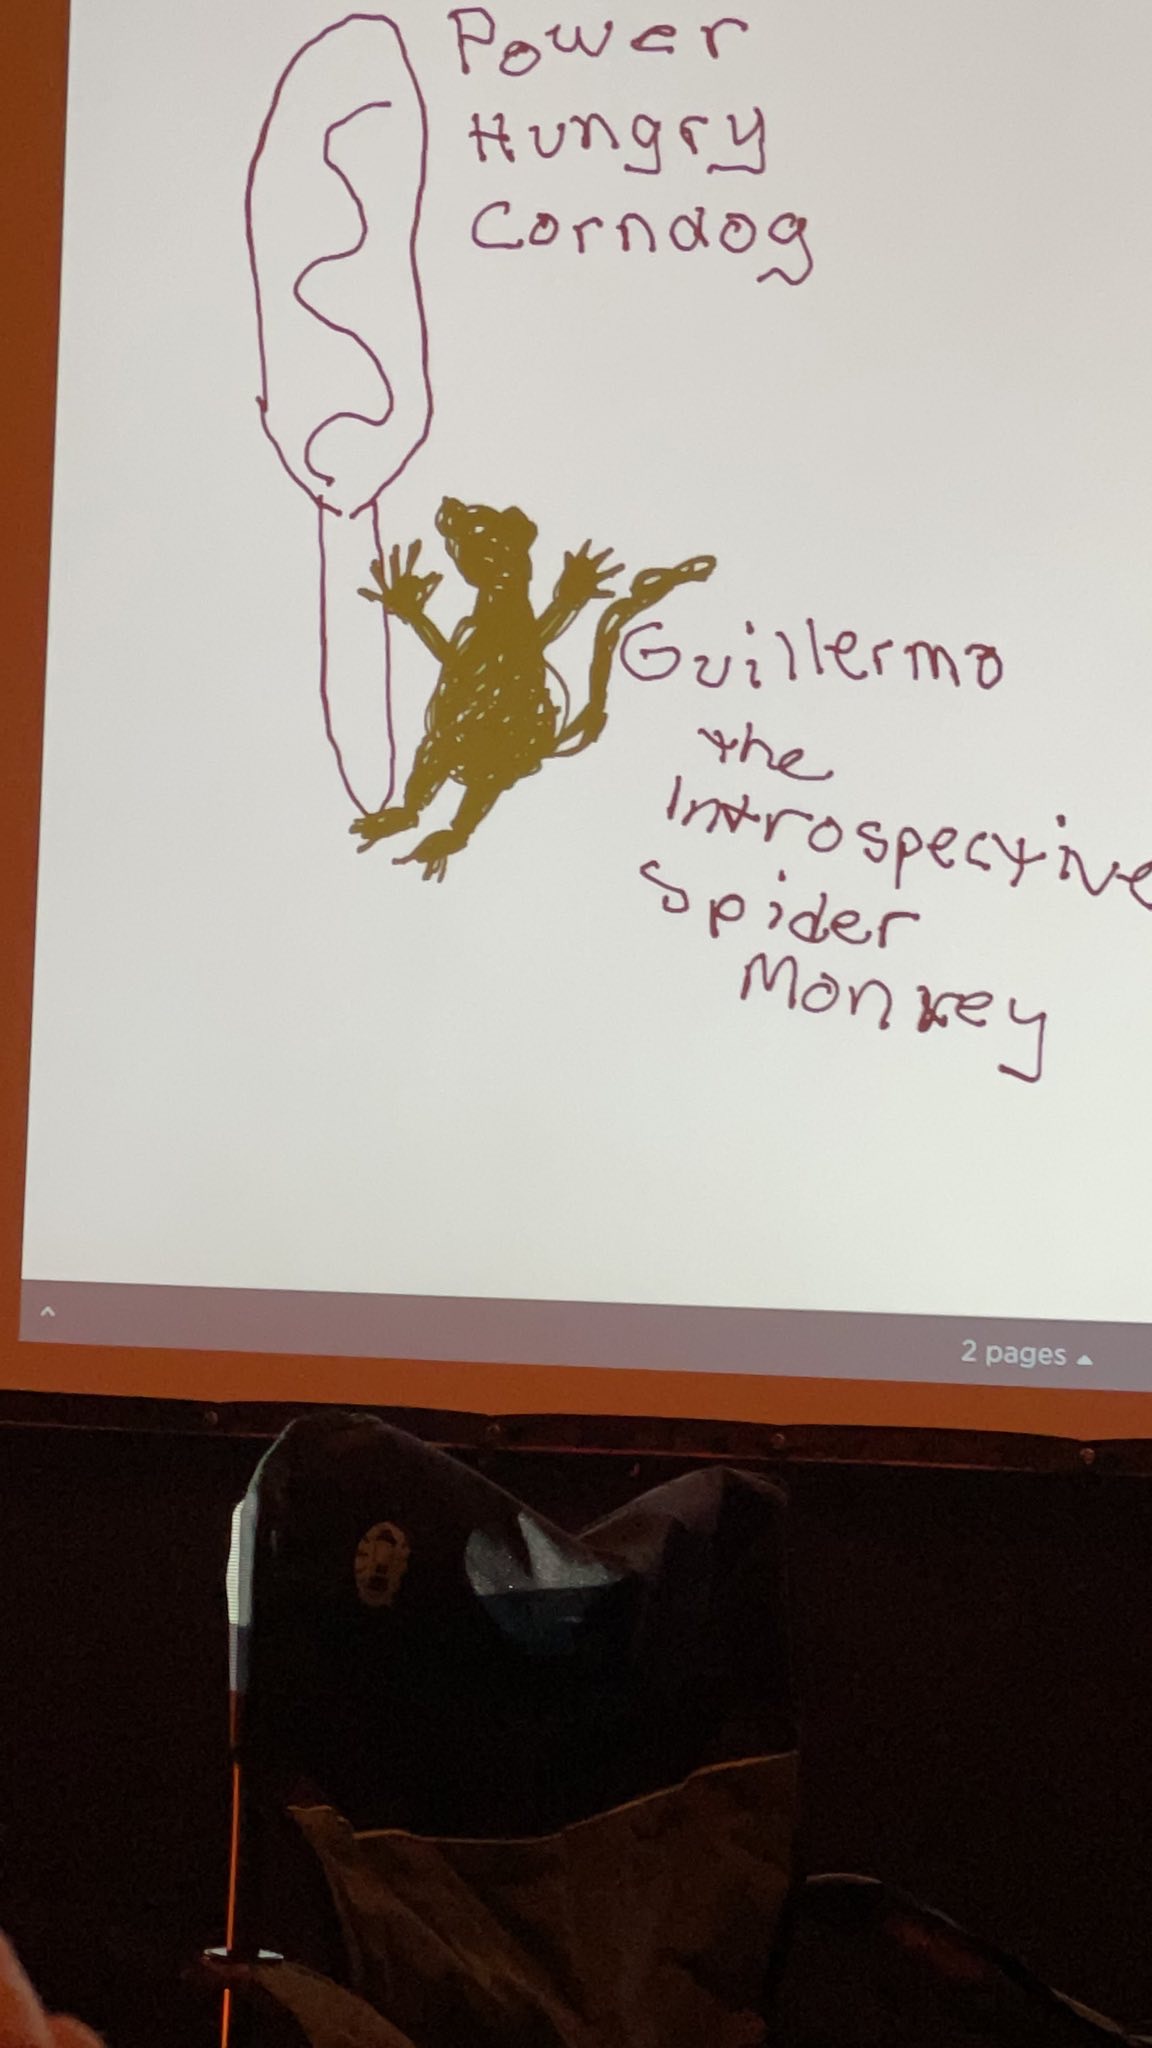 Power
Hungry
Corndog
Guillermo
the
Introspective
Spider
Monkey
2 pages